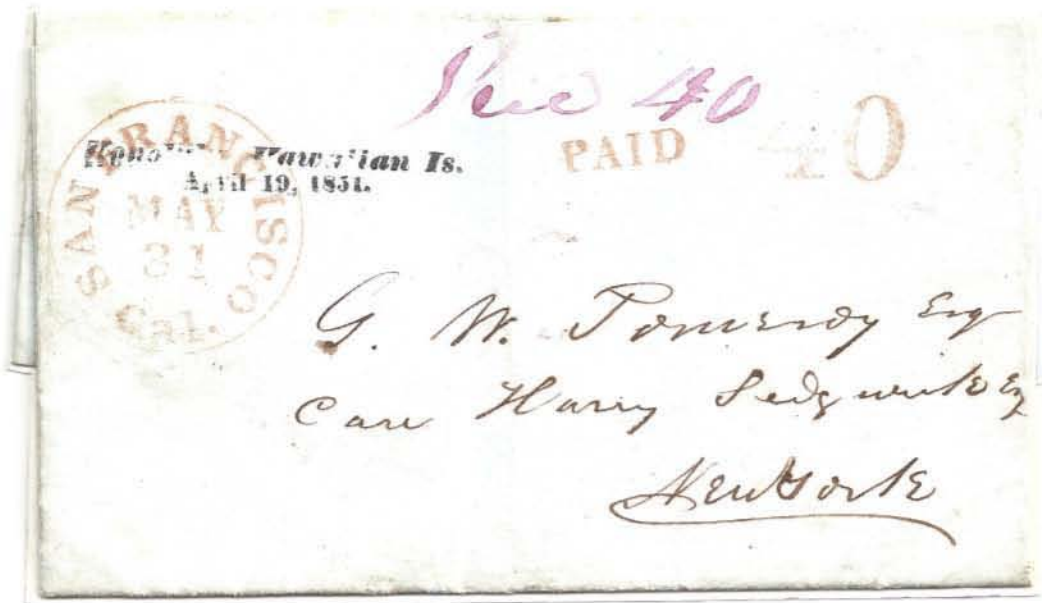 Paid 40
PAID 40
Hawaiian Is.
April 19, 1851.
SAN FRANCISCO
MAY
31
Cal.
G. W. Pomeroy Esq
Care Harry Sedgwick Esq
New York